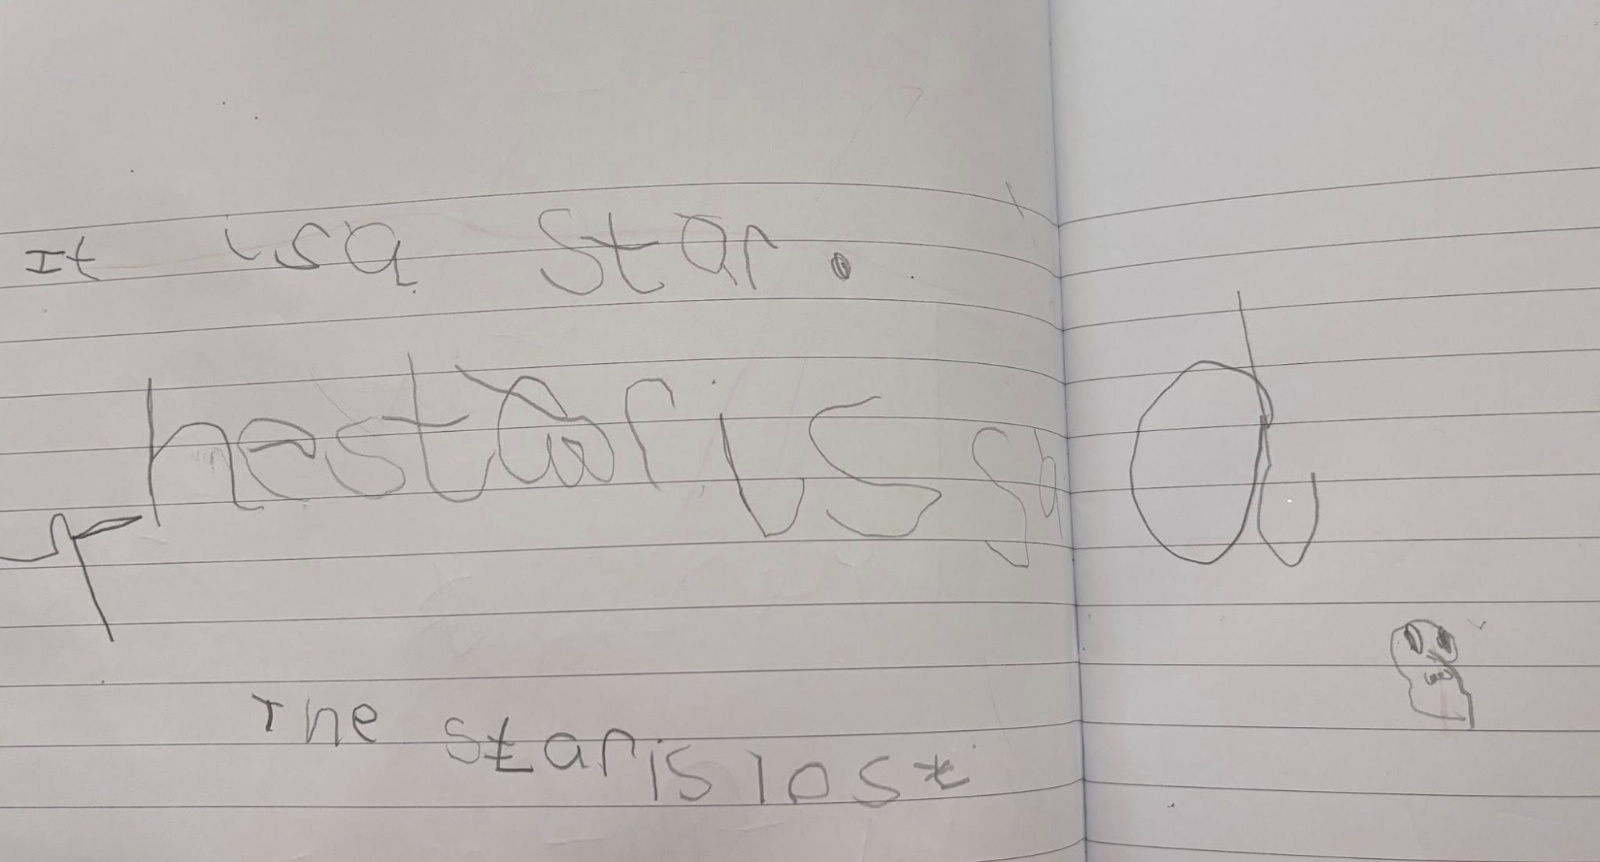 It is a star.
The star is sad
The star is lost